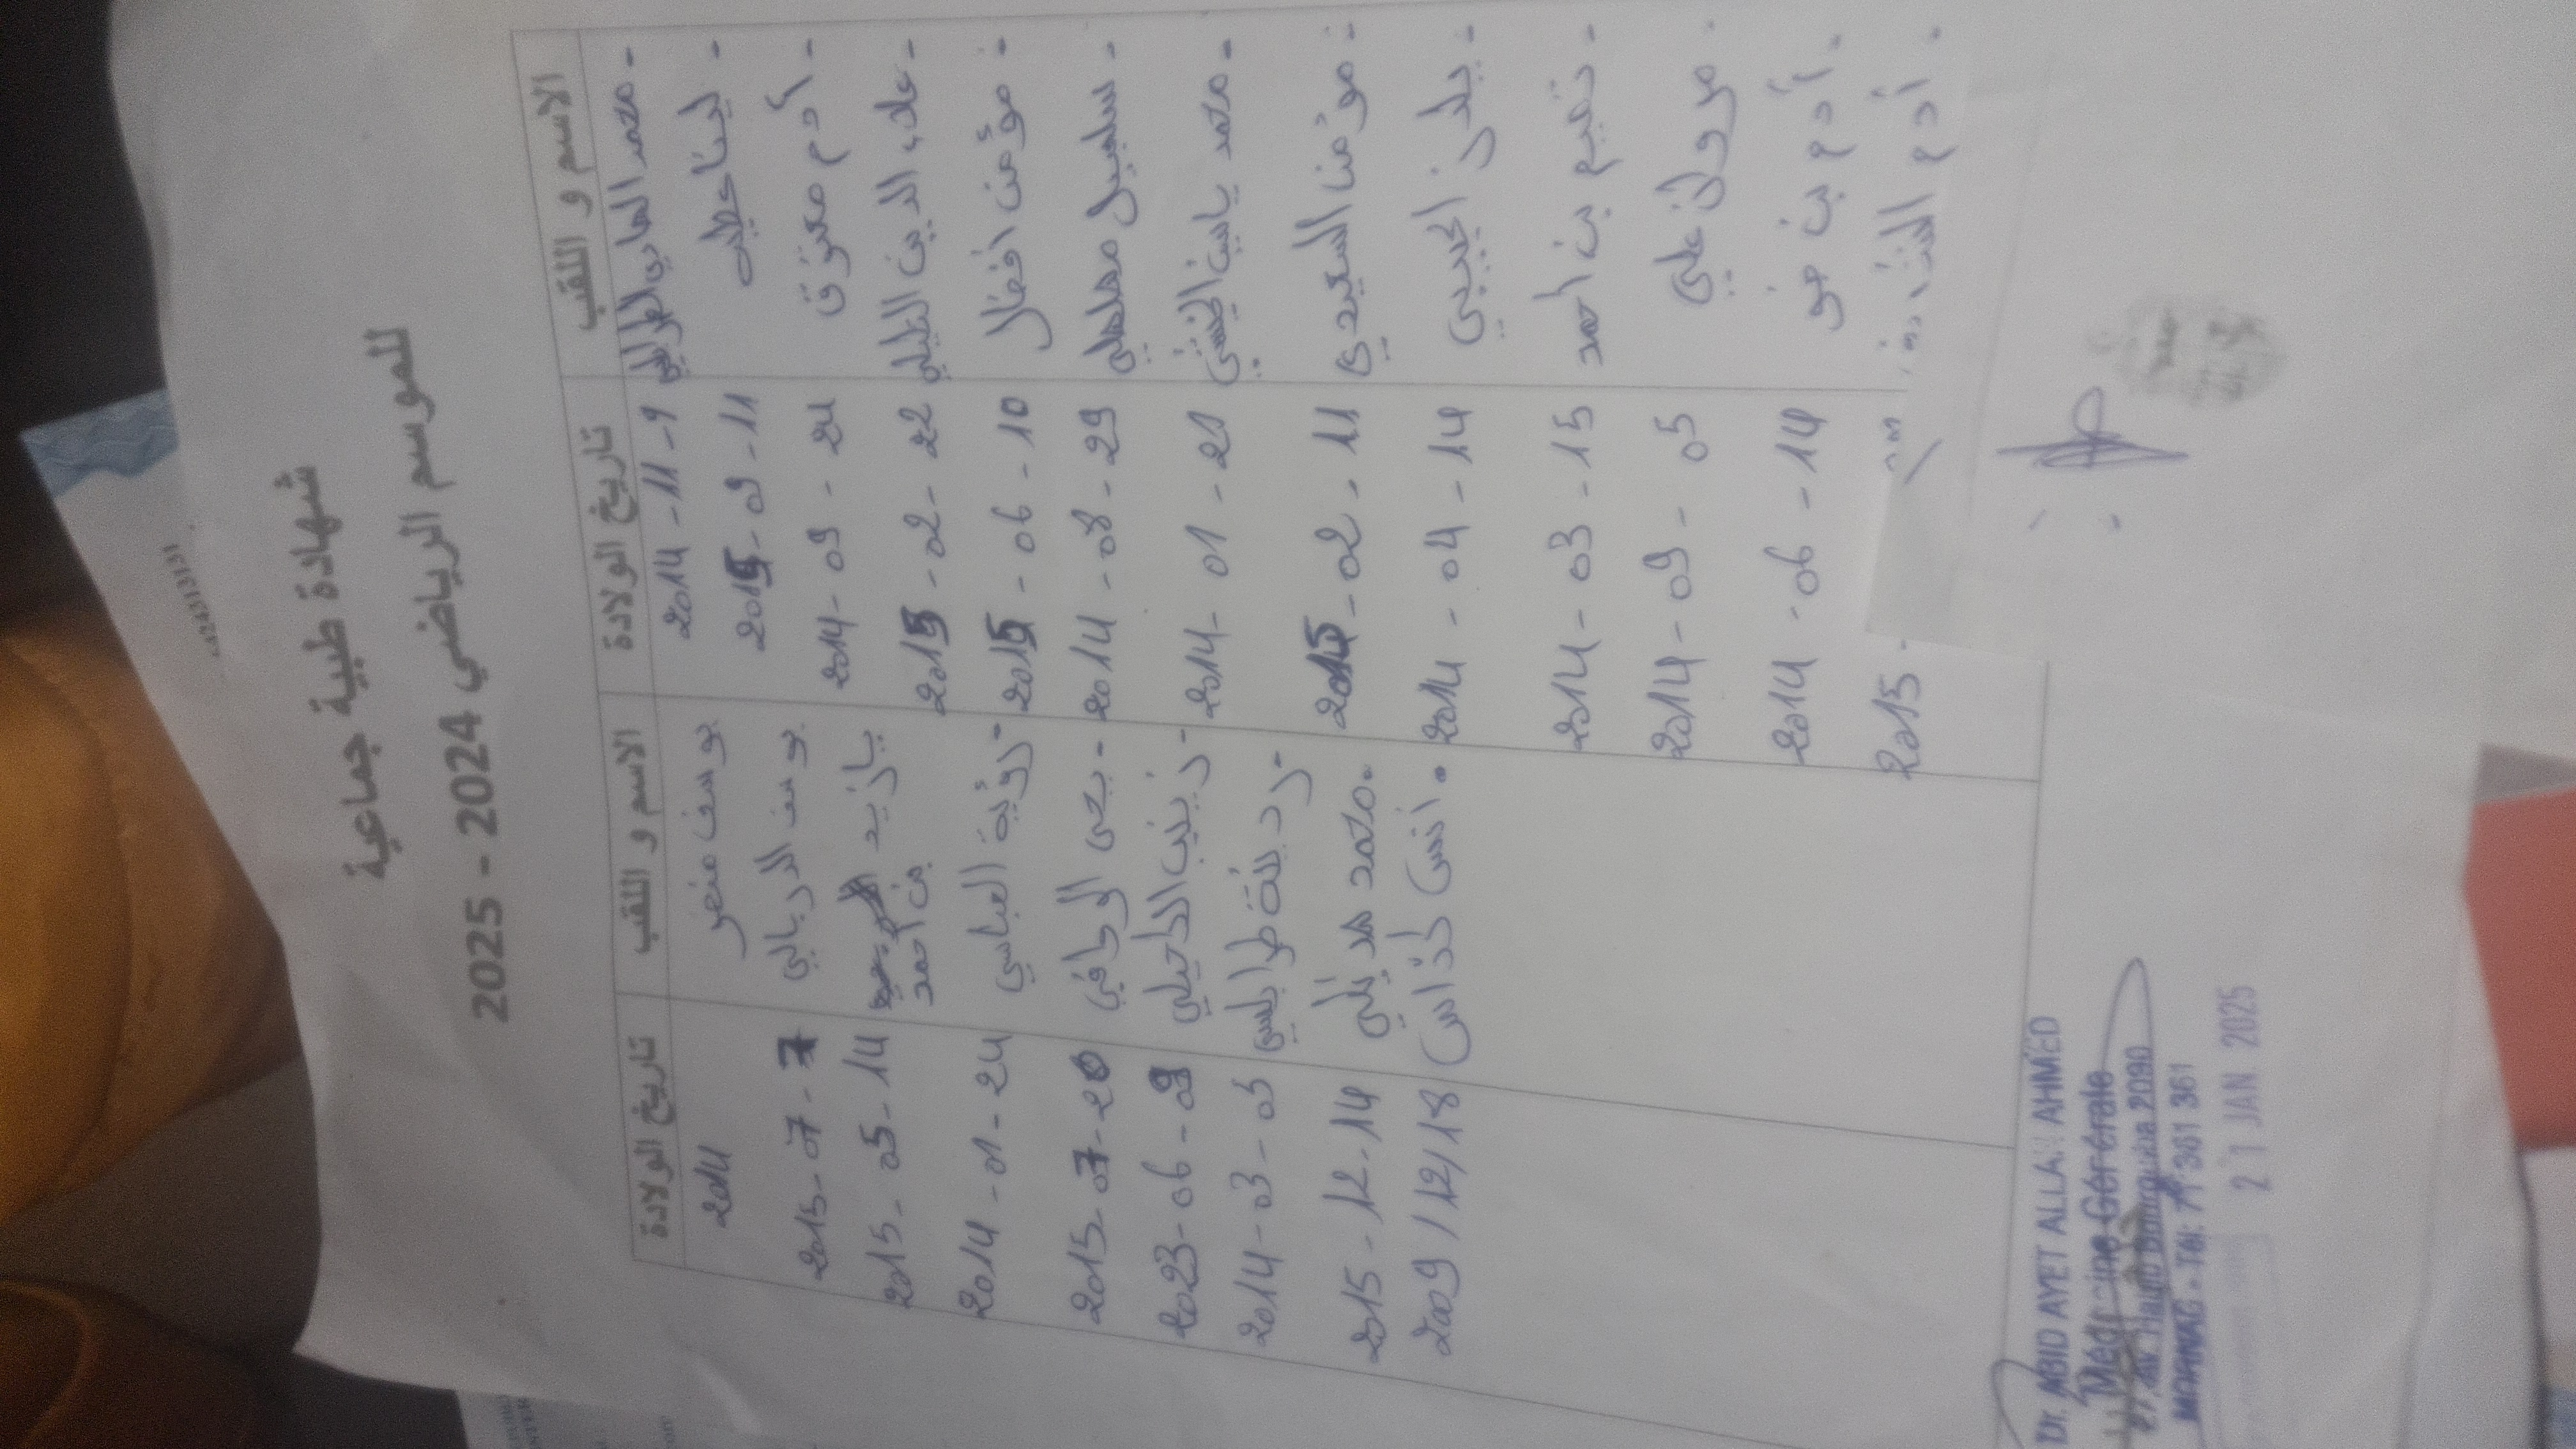 شهادة طبية جماعية
للموسم الرياضي 2024 - 2025
الاسم و اللقب تاريخ الولادة الاسم و اللقب تاريخ الولادة
محمد الهادي الطرابلسي 2014 - 11 - 9 يوسف منصر 2014
لينا عطية 2015 - 09 - 11 يوسف الدربالي 2015 - 07 - 7
أدم معتوق 2014 - 09 - 24 يازيد بن احمد 2015 - 05 - 14
علاء الدين التليلي 2015 - 02 - 22 رؤية العباسي 2014 - 01 - 24
مؤمن 2015 - 06 - 10 يحي الوحافي 2015 - 07 - 20
سهيل مهلهلي 2014 - 08 - 29 زينب الكحيلي 2023 - 06 - 09
محمد ياسين 2014 - 01 - 21 طرابلسي 2014 - 03 - 05
مؤمن السعيدي 2015 - 02 - 11 محمد هذيلي 2015 - 12 - 14
يزن الحبيبي 2014 - 04 - 14 انس 2009 / 12 / 18
نعيم بن احمد 2014 - 03 - 15
مروان علي 2014 - 09 - 05
أدم بن 2014 - 06 - 14
أدم 2015 -
Dr. ABID AYET ALLAH AHMED
Médecine Générale
Av. Habib Bourguiba 2090
MORNAG - Tél: 71 361 361
21 JAN 2025